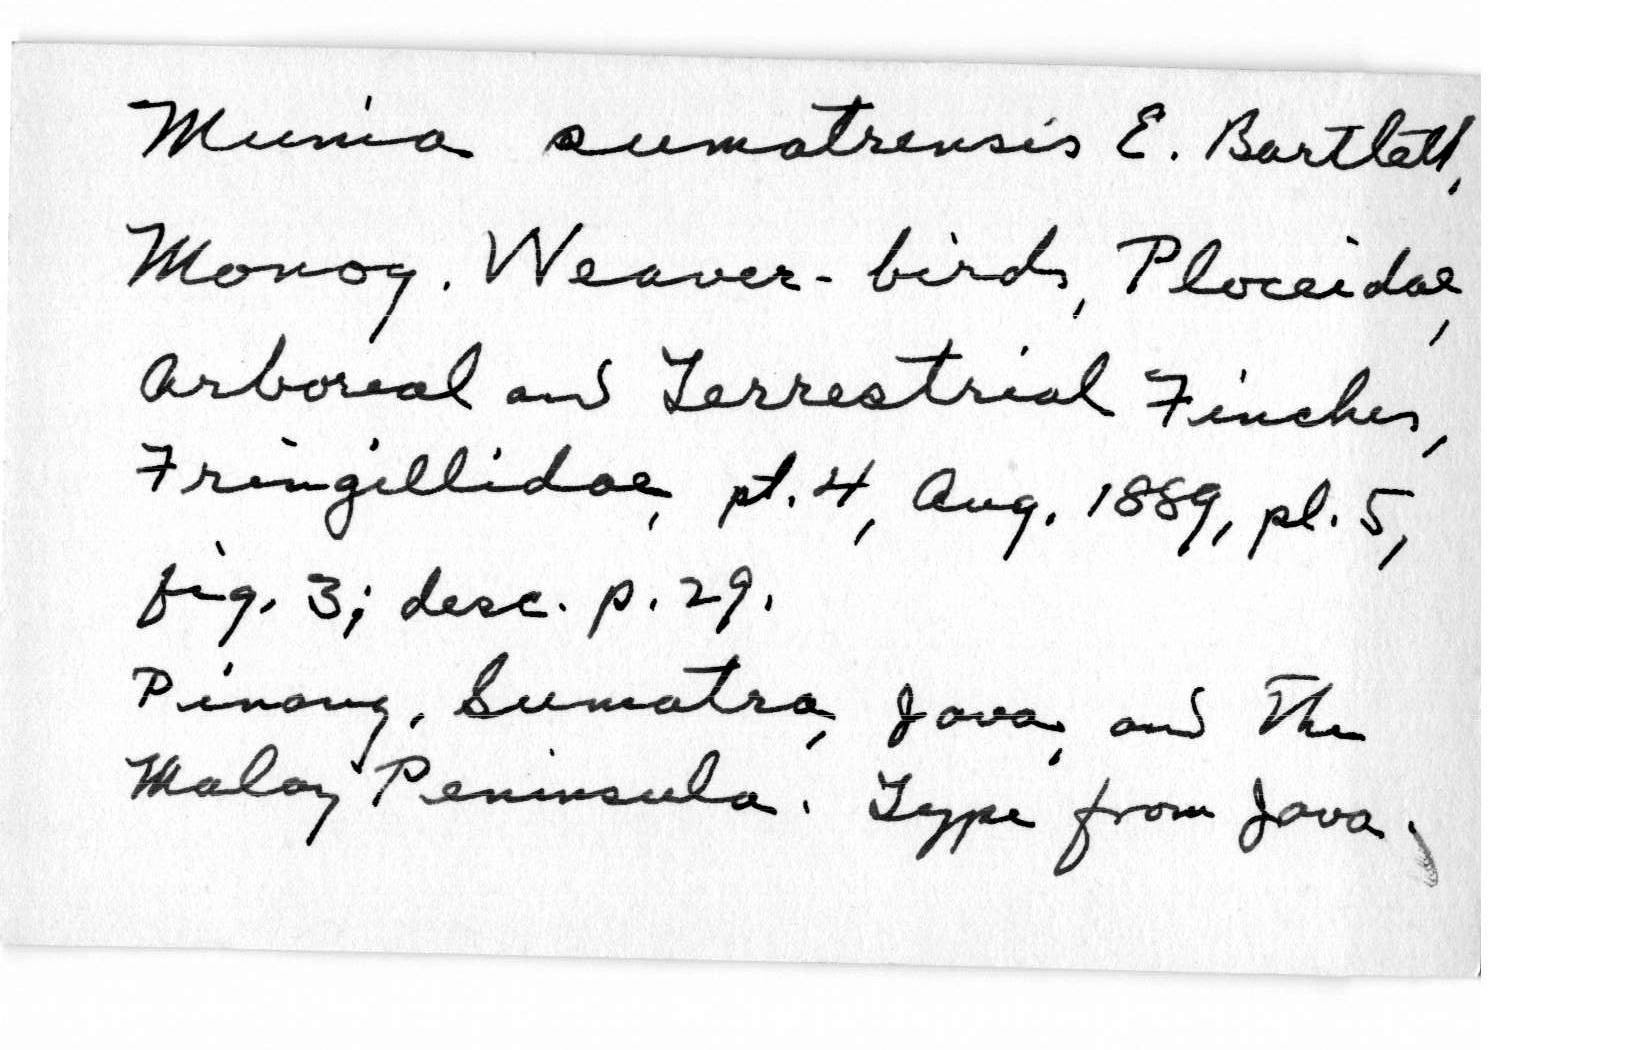 Munia sumatrensis E. Bartlett,
Monog. Weaver-birds, Ploceidae,
Arboreal and Terrestrial Finches,
Fringillidae, pt. 4, Aug. 1889, pl. 5,
fig. 3; desc. p. 29.
Pinang, Sumatra, Java, and the
Malay Peninsula. Type from Java.